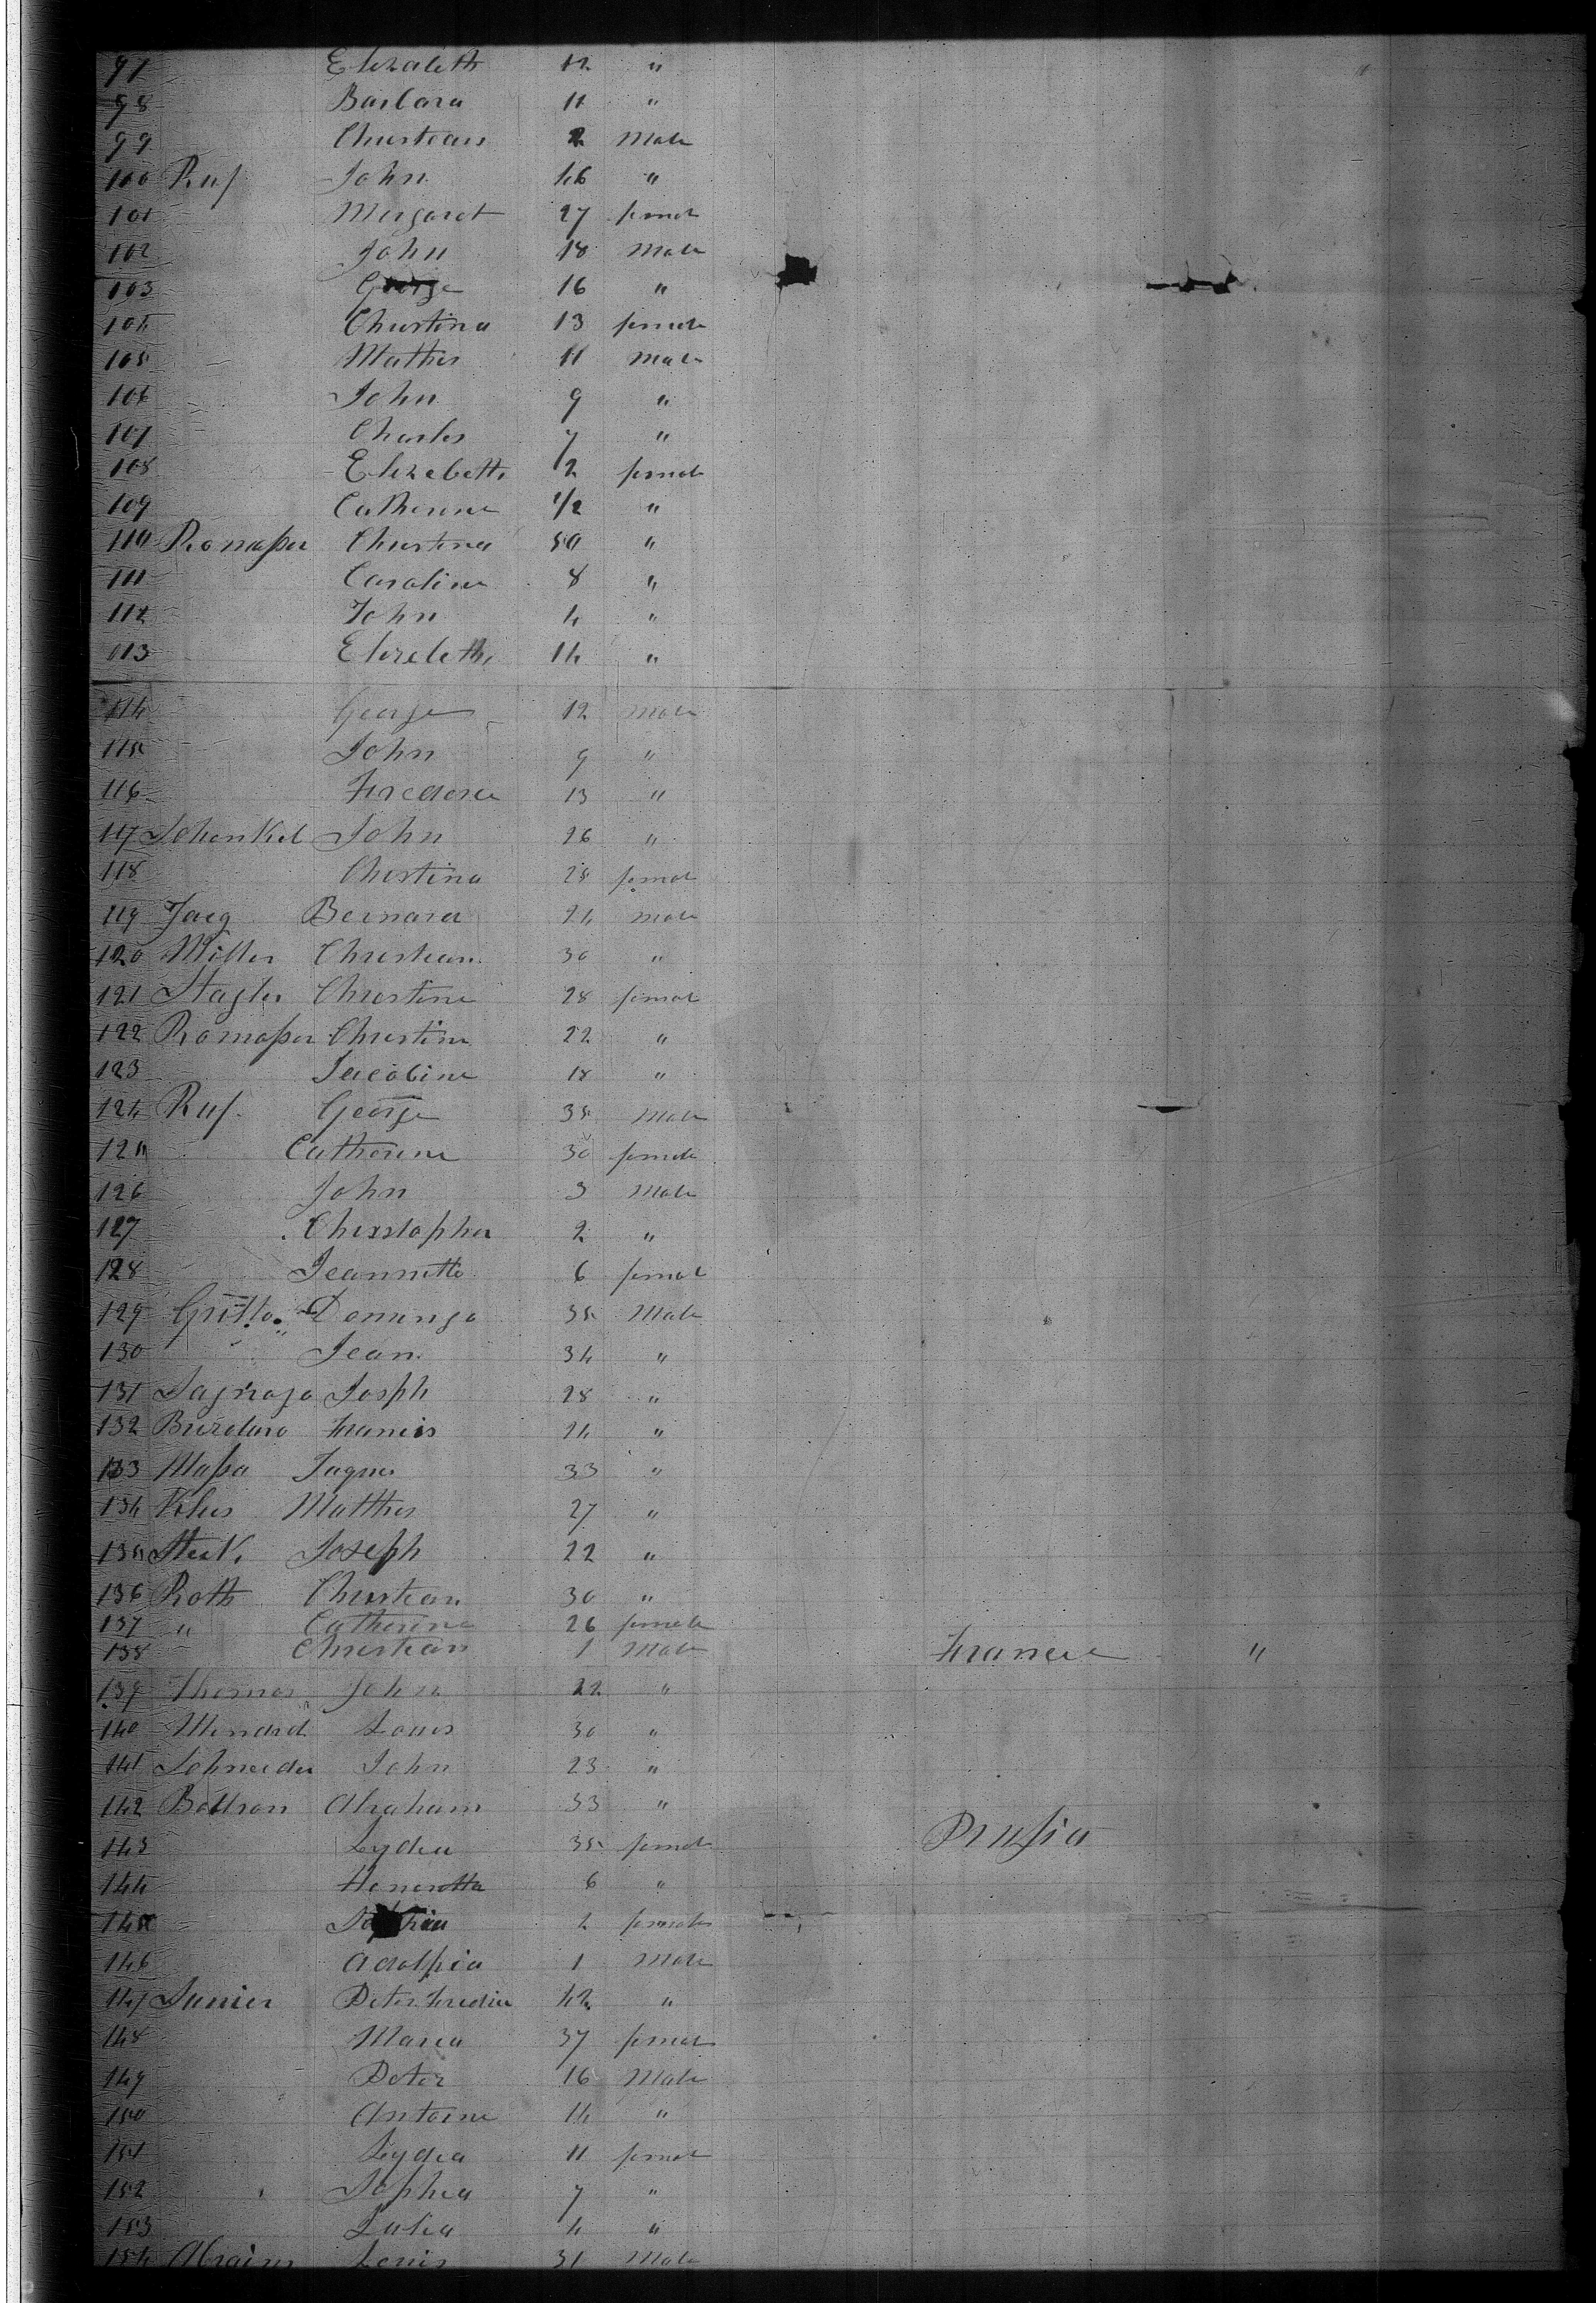 97 Elizabeth 12 "
98 Barbara 11 "
99 Christian 2 Male
100 Ruf John 46 "
101 Margaret 27 female
102 John 18 Male
103 George 16 "
104 Christina 13 female
105 Mathis 11 Male
106 John 9 "
107 Charles 7 "
108 Elizebeth 2 female
109 Catherine 1/2 "
110 Romaßer Christina 50 "
111 Caroline 8 "
112 John 4 "
113 Elizebeth 14 "
114 George 12 Male
115 John 9 "
116 13 "
117 Schenkel John 26 "
118 Christina 25 female
119 Jaeg Bernard 24 Male
120 Miller Christian 30 "
121 Christine 28 female
122 Romaßer Christine 22 "
123 Jacobine 18 "
124 Ruf George 35 Male
125 Catherine 30 female
126 John 3 Male
127 Christopher 2 "
128 Jeannette 6 female
129 Domingo 35 Male
130 Jean 34 "
131 Joseph 28 "
132 Francis 24 "
133 Maßa Jaques 33 "
134 Matthis 27 "
135 Joseph 22 "
136 Roth Christian 30 "
137 " Catherine 26 female
138 Christian 1 Male France "
139 Thomas John 22 "
140 Menard Louis 30 "
141 Schneider John 23 "
142 Abraham 33 "
143 Lydia 35 female Prußia
144 Henerotta 6 "
145 2 female
146 Adolphia 1 Male
147 Peter 42 "
148 Maria 37 female
149 Peter 16 Male
150 Antoine 14 "
151 Lydia 11 female
152 Sophia 7 "
153 Julia 4 "
154 Louis 31 Male